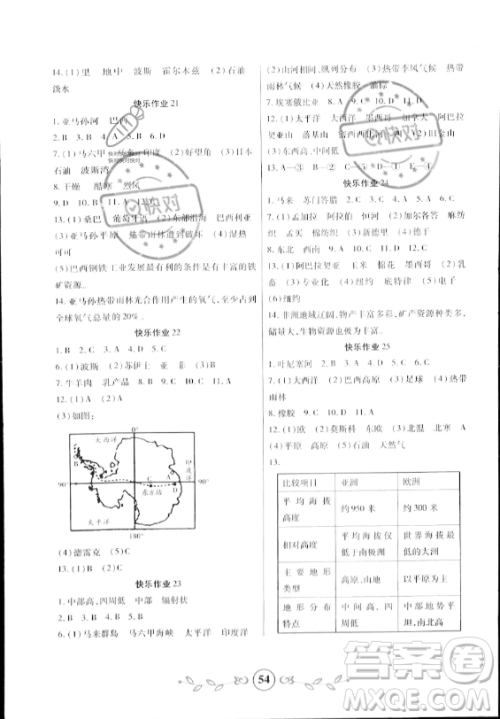 14.(1)里 地中 波斯 霍尔木兹 (2)石油
淡水
快乐作业 21
1.亚马孙河 巴
2.B 3.B 4.B 5.
7.(1)马六甲 (2)好望角 日本
石油 波斯湾
8.干燥 酷寒 烈风
9.D 10.B 11.A 12.
13.(1)桑巴 葡萄 (2)东部沿海 巴西利亚
(3)亚马孙平原 热带雨林遭到破坏 (4)湿热
可可
(5)巴西钢铁工业发展最有利的条件是有丰富的铁
矿资源
14.亚马孙热带雨林光合作用产生的氧气,至少占
全球氧气总量的20%.
快乐作业 22
1.B 2.C 3.C 4.D 5.C
6.(1)波斯 (2)苏伊士 亚 非 (3)
7.牛羊肉 乳产品 8.C 9.B 10.D 11.B
12.(1)C (2)A
(3)如图:
大西洋
0°
90° B A C D 90°
东方站
太平洋
180°
(4)德雷克 (5)C
13.(1)B (2)C
快乐作业 23
1.中部高,四周低 中部 辐射状
2.B 3.C 4.D 5.D
6.(1)马来群岛 马六甲海峡 太平洋 印度洋
(2)山河相间,纵列分布 (3)热带季风气候 热带
雨林气候 (4)天然橡胶 油棕
7.埃塞俄比亚 8.A 9.C 10.D 11.A
12.(1)大西洋 太平洋 墨西哥 加拿大 阿巴拉
契亚 落基山
(2)东西高,中间低 (3)D
13.A—③ B—① C—②
快乐作业 24
1.马来 苏门答腊 2.C 3.C 4.D 5.D
6.(1)孟加拉 阿拉伯 恒河 (2)加尔各答 麻纺
织 孟买 棉纺织 (3)C (4)德干
8.东北 西南 9.B 10.D 11.C
13.(1)阿巴拉契亚 (2)
畜 棉花 墨西哥 (3)
(4)底特律 (5)电子
(6)纽约
14.非洲地域辽阔,物产丰富,矿产资源的种类多,
储量大,旅游资源也极为丰富.
快乐作业 25
1.叶尼塞河 2.B 3.C 4.C 5.B 6.D
7.(1)大西洋 (2)巴西高原 (3)足球 (4)热带
雨林
8.橡胶 9.B 10.D 11.C
12.(1)欧 (2)莫斯科 (3)欧 北冰 A
(4)平原 (5)石油 天然气
13.
比较项目 亚洲 欧洲
平均海拔高度 约950米 约300米
相对高度 平均海拔仅低于南极洲 世界海拔最低的大洲
主要地形类型 高原、山地 以平原为主
地形分布特点 中间高,四周低 中部低,南北高
54
快对
答案圈
MXQE.COM